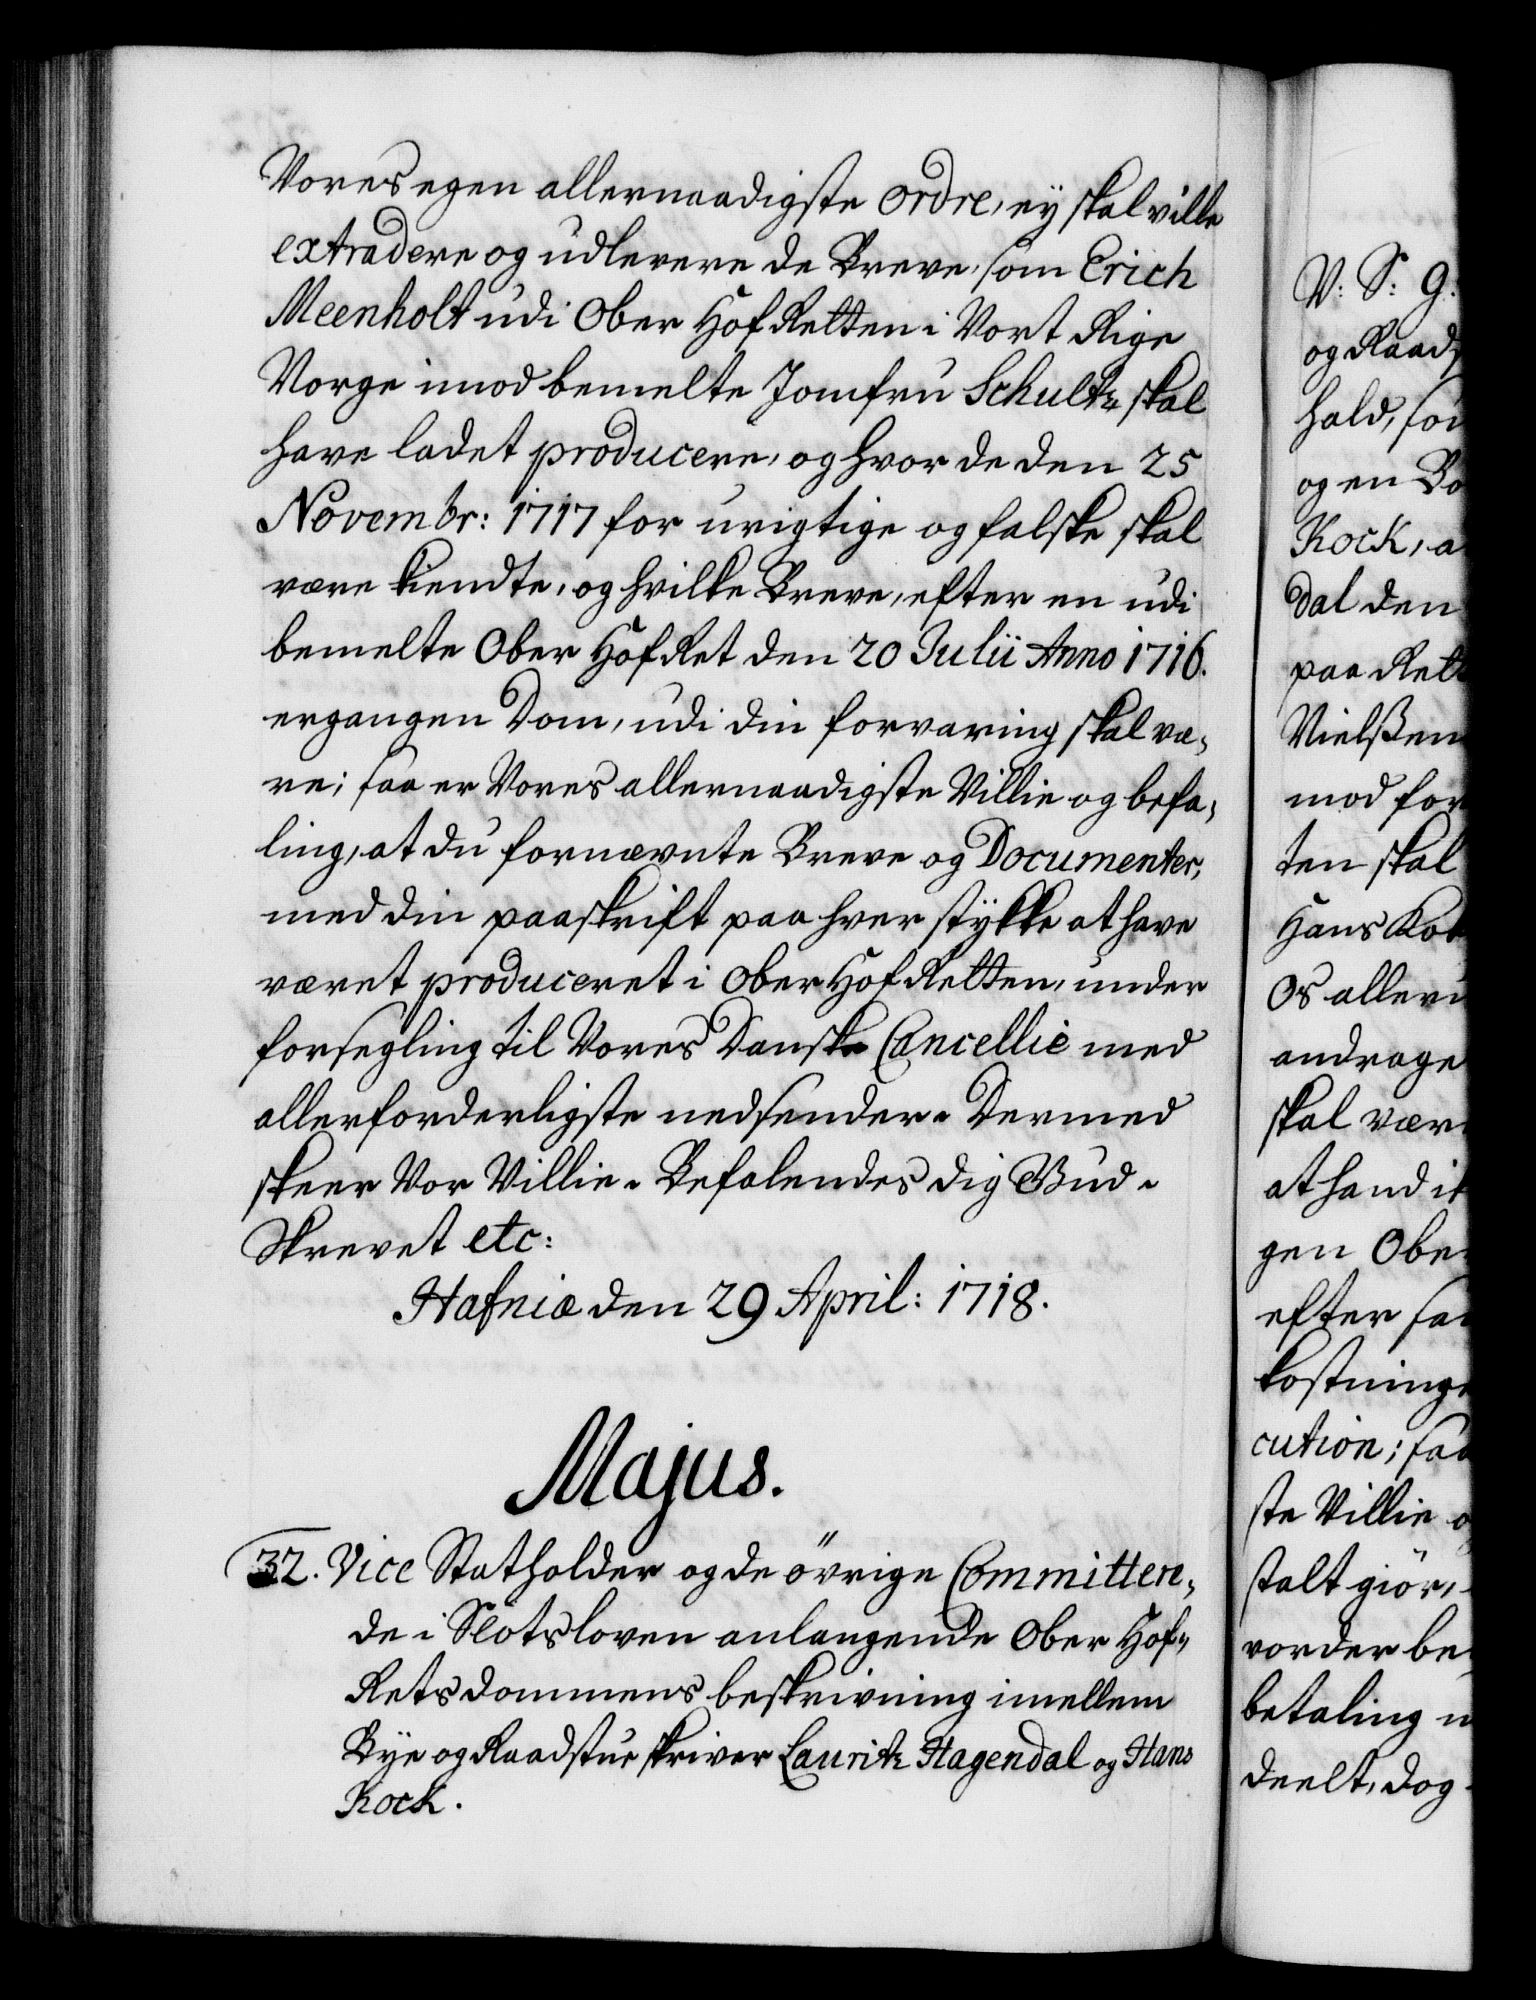 Vores egen allernaadigste ordre, ey skal ville
extradere og udlevere de Breve, som Erich
Meenholt udi Ober Hof Retten i Vort Rige
Norge imod bemelte Jomfru Schultz skal
have ladet producere, og hvor de den 25
Novembr: 1717 for urigtige og falske skal
være kiendte, og hvilke Breve, efter en udi
bemelte Ober Hof Ret den 20 Julii Anno 1716.
ergangen Dom, udi din forvaring skal væ-
re; saa er Vores allernaadigste Villie og befa-
ling, at du fornævnte Breve og Documenter,
med din paaskrift paa hver stykke at have
været produceret i Ober Hof Retten, under
forsegling til Vores Danske Cancellie med
allerforderligste nedsender. Dermed
skeer Vor Villie. Befalendes dig Gud.
Skrevet etc:
Hafniæ den 29 April: 1718.
Majus.
32. Vice Statholder og de övrige Committere-
de i Slotsloven anlangende Ober Hof-
Rets dommens beskrivning imellem
Bye og Raadstue skriver Lauritz Hagendal og Hans
Kock.
V: S: G:
og Raads
hald, so
og en Bo
Kock, a
dal den
paa Rett
Nielßen
mod for
ten skal
Hans Koc
Os allern
andrage
skal vær
at hand ik
gen Obe
efter sa
kostninge
cution; saa
ste Villie o
stalt giör,
vorder be
betaling u
deelt, dog